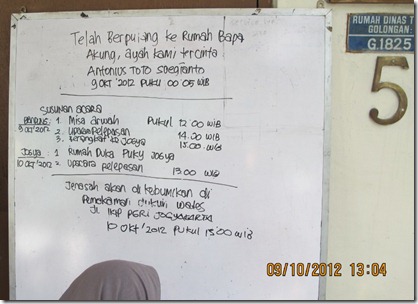 Telah Berpulang ke Rumah Bapa
Akung, ayah kami tercinta
Antonius TOTO Soegianto
9 OKT '2012 PUKUL 00 05 WIB
SUSUNAN ACARA
BANDUNG: 1. Misa arwah PUKUL 12 00 WIB
9 Okt'2012 2. Upacara Pelepasan 14.30 WIB
3. Berangkat ke Jogya 15.00 WIB
JOGYA: 1 Rumah Duka PUKY JOGYA
10 Okt '2012 2. Upacara pelepasan 13 00 WIB
Jenasah akan di kebumikan di
Pemakaman
Jl. IKIP PGRI JOGYAKARTA
10 Okt '2012 pukul 15 00 WIB
RUMAH DINAS T
GOLONGAN:
G.1825
5
09/10/2012 13:04